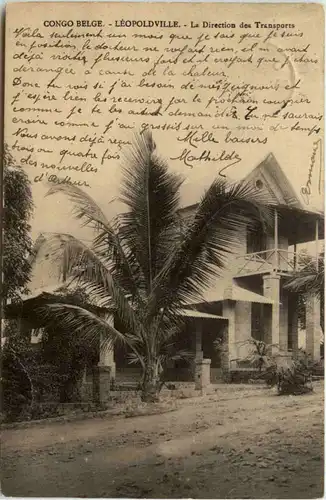 CONGO BELGE. - LÉOPOLDVILLE. - La Direction des Transports
Voila seulement un mois que je sais que je suis
en position, le docteur ne voyait rien, et m avait
déjà fois et il croyait que j'etais
derangée a cause de la chaleur.
Donc tu vois si j'ai besoin de mes et
j'espère bien les recevoirs par le prochain courrier
comme je te les avait demandée. Tu ne saurais
croire comme j'ai grossis sur un mois de temps
Nous avons déjà reçu Mille baisers
3 ou quatre fois Mathilde
des nouvelles
d'Arthur